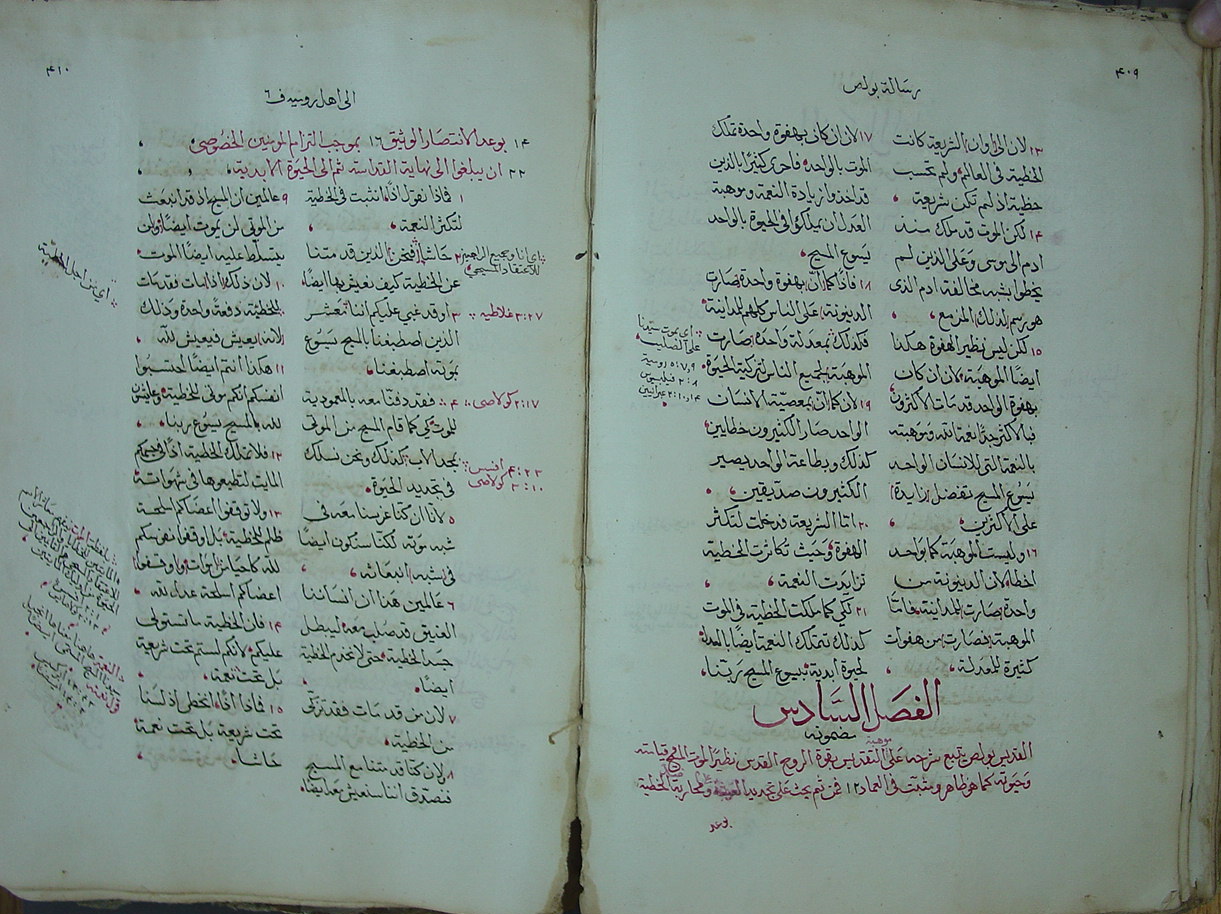 ٤٠٩
رسالة بولص
١٣ لان الى اوان الشريعة كانت
الخطية في العالم ولم تحتسب
خطية اذ لم تكن شريعة
١٤ لكن الموت قد ملك منذ
ادم الى موسى وعلى الذين لم
يخطوا بشبه مخالفة ادم الذي
هو رسم لذلك المزمع
١٥ لكن ليس نظير الهفوة هكذا
ايضًا الموهبة لان ان كان
بهفوة الواحد قد مات الاكثرون
فبالاكثر جدًا نعمة الله وموهبته
بالنعمة التي للانسان الواحد
يسوع المسيح تفضل زايدة
على الاكثرين
١٦ وليست الموهبة كما بواحد
اخطا لان الدينونة من
واحدة صارت للمداينة فاما
الموهبة فصارت من هفوات
كثيرة للمعدلة
١٧ لان ان كان بهفوة واحدة تملك
الموت بالواحد فاحرى كثيرًا بالذين
قد اخذوا زيادة النعمة وموهبة
العدل ان يملكوا في الحيوة بالواحد
يسوع المسيح
١٨ فاذًا كما ان بهفوة واحدة صارت
الدينونة على الناس كلهم للمداينة
فكذلك بمعدلة واحدة صارت
الموهبة لجميع الناس لتزكية الحيوة
١٩ لان كما ان بمعصية الانسان
الواحد صار الكثيرون خطايين
كذلك وبطاعة الواحد يصير
الكثيرون صديقين
٢٠ اما الشريعة فدخلت لتكثر
الهفوة وحيث تكاثرت الخطية
تزايدت النعمة
٢١ لكي كما ملكت الخطية في الموت
كذلك تتملك النعمة ايضًا بالعدل
لحيوة ابدية بيسوع المسيح ربنا
اي بموت سيدنا
على الصليب
الفصل السادس
مضمونه
القديس بولص يتبع شرحه على التقديس بقوة الروح القدس نظير الموت المسيح قيامته
وحيوته كما هو ظاهر ومثبت في العماد ١٢ فمن ثم يحث على تجديد العيشة ومحاربة الخطية
٤١٠
الى اهل رومية ف ٦
١٤ بوعد الانتصار الوثيق ١٦ بموجب التزام المومنين الخصوصي
٢٢ ان يبلغوا الى نهاية القداسة ثم الى الحيوة الابدية
١ فماذا نقول اذًا انثبت في الخطية
لتكثر النعمة
٢ حاشا فنحن الذين قد متنا
عن الخطية كيف نعيش بها ايضًا
٣ او قد غبي عليكم اننا معشر
الذين اصطبغنا بالمسيح يسوع
بموته اصطبغنا
٤ فقد دفنا معه بالمعمودية
للموت لكي كما قام المسيح من الموتى
بمجد الاب كذلك ونحن نسلك
في تجديد الحيوة
٥ لاننا ان كنا غرسنا معه في
شبه موته لكنا سنكون ايضًا
في شبه انبعاثه
٦ عالمين هذا ان انساننا
العتيق قد صلب معه ليبطل
جسد الخطية حتى لا نخدم الخطية
ايضًا
٧ لان من قد مات فقد تزكى
من الخطية
٨ لان كنا قد متنا مع المسيح
فنصدق اننا سنعيش معه ايضًا
٩ عالمين ان المسيح اذ قد انبعث
من الموتى لن يموت ايضًا ولن
يتسلط عليه ايضًا الموت
١٠ لان ذلك اذ مات فقد مات
للخطية دفعة واحدة وذلك
لانه يعيش فيعيش لله
١١ هكذا انتم ايضًا احتسبوا
انفسكم انكم موتى للخطية وعايشون
لله بالمسيح يسوع ربنا
١٢ فلا تملك الخطية اذًا في جسمكم
المايت لتطيعوها في شهواته
١٣ ولا توقفوا اعضاكم اسلحة
ظلم للخطية بل اوقفوا نفوسكم
لله كاحيا من الموات واوقفوا
اعضاكم اسلحة عدل لله
١٤ فان الخطية ما تستولى
عليكم لانكم لستم تحت شريعة
بل تحت نعمة
١٥ فماذا اذًا انخطى اذ لسنا
تحت شريعة بل تحت نعمة
حاشا
٣:٢٧ غلاطيه
٢:١٧ كولاصى
٤:٢٣ افسس
٣:١٠ كولاصى
اي من اجل الخطية